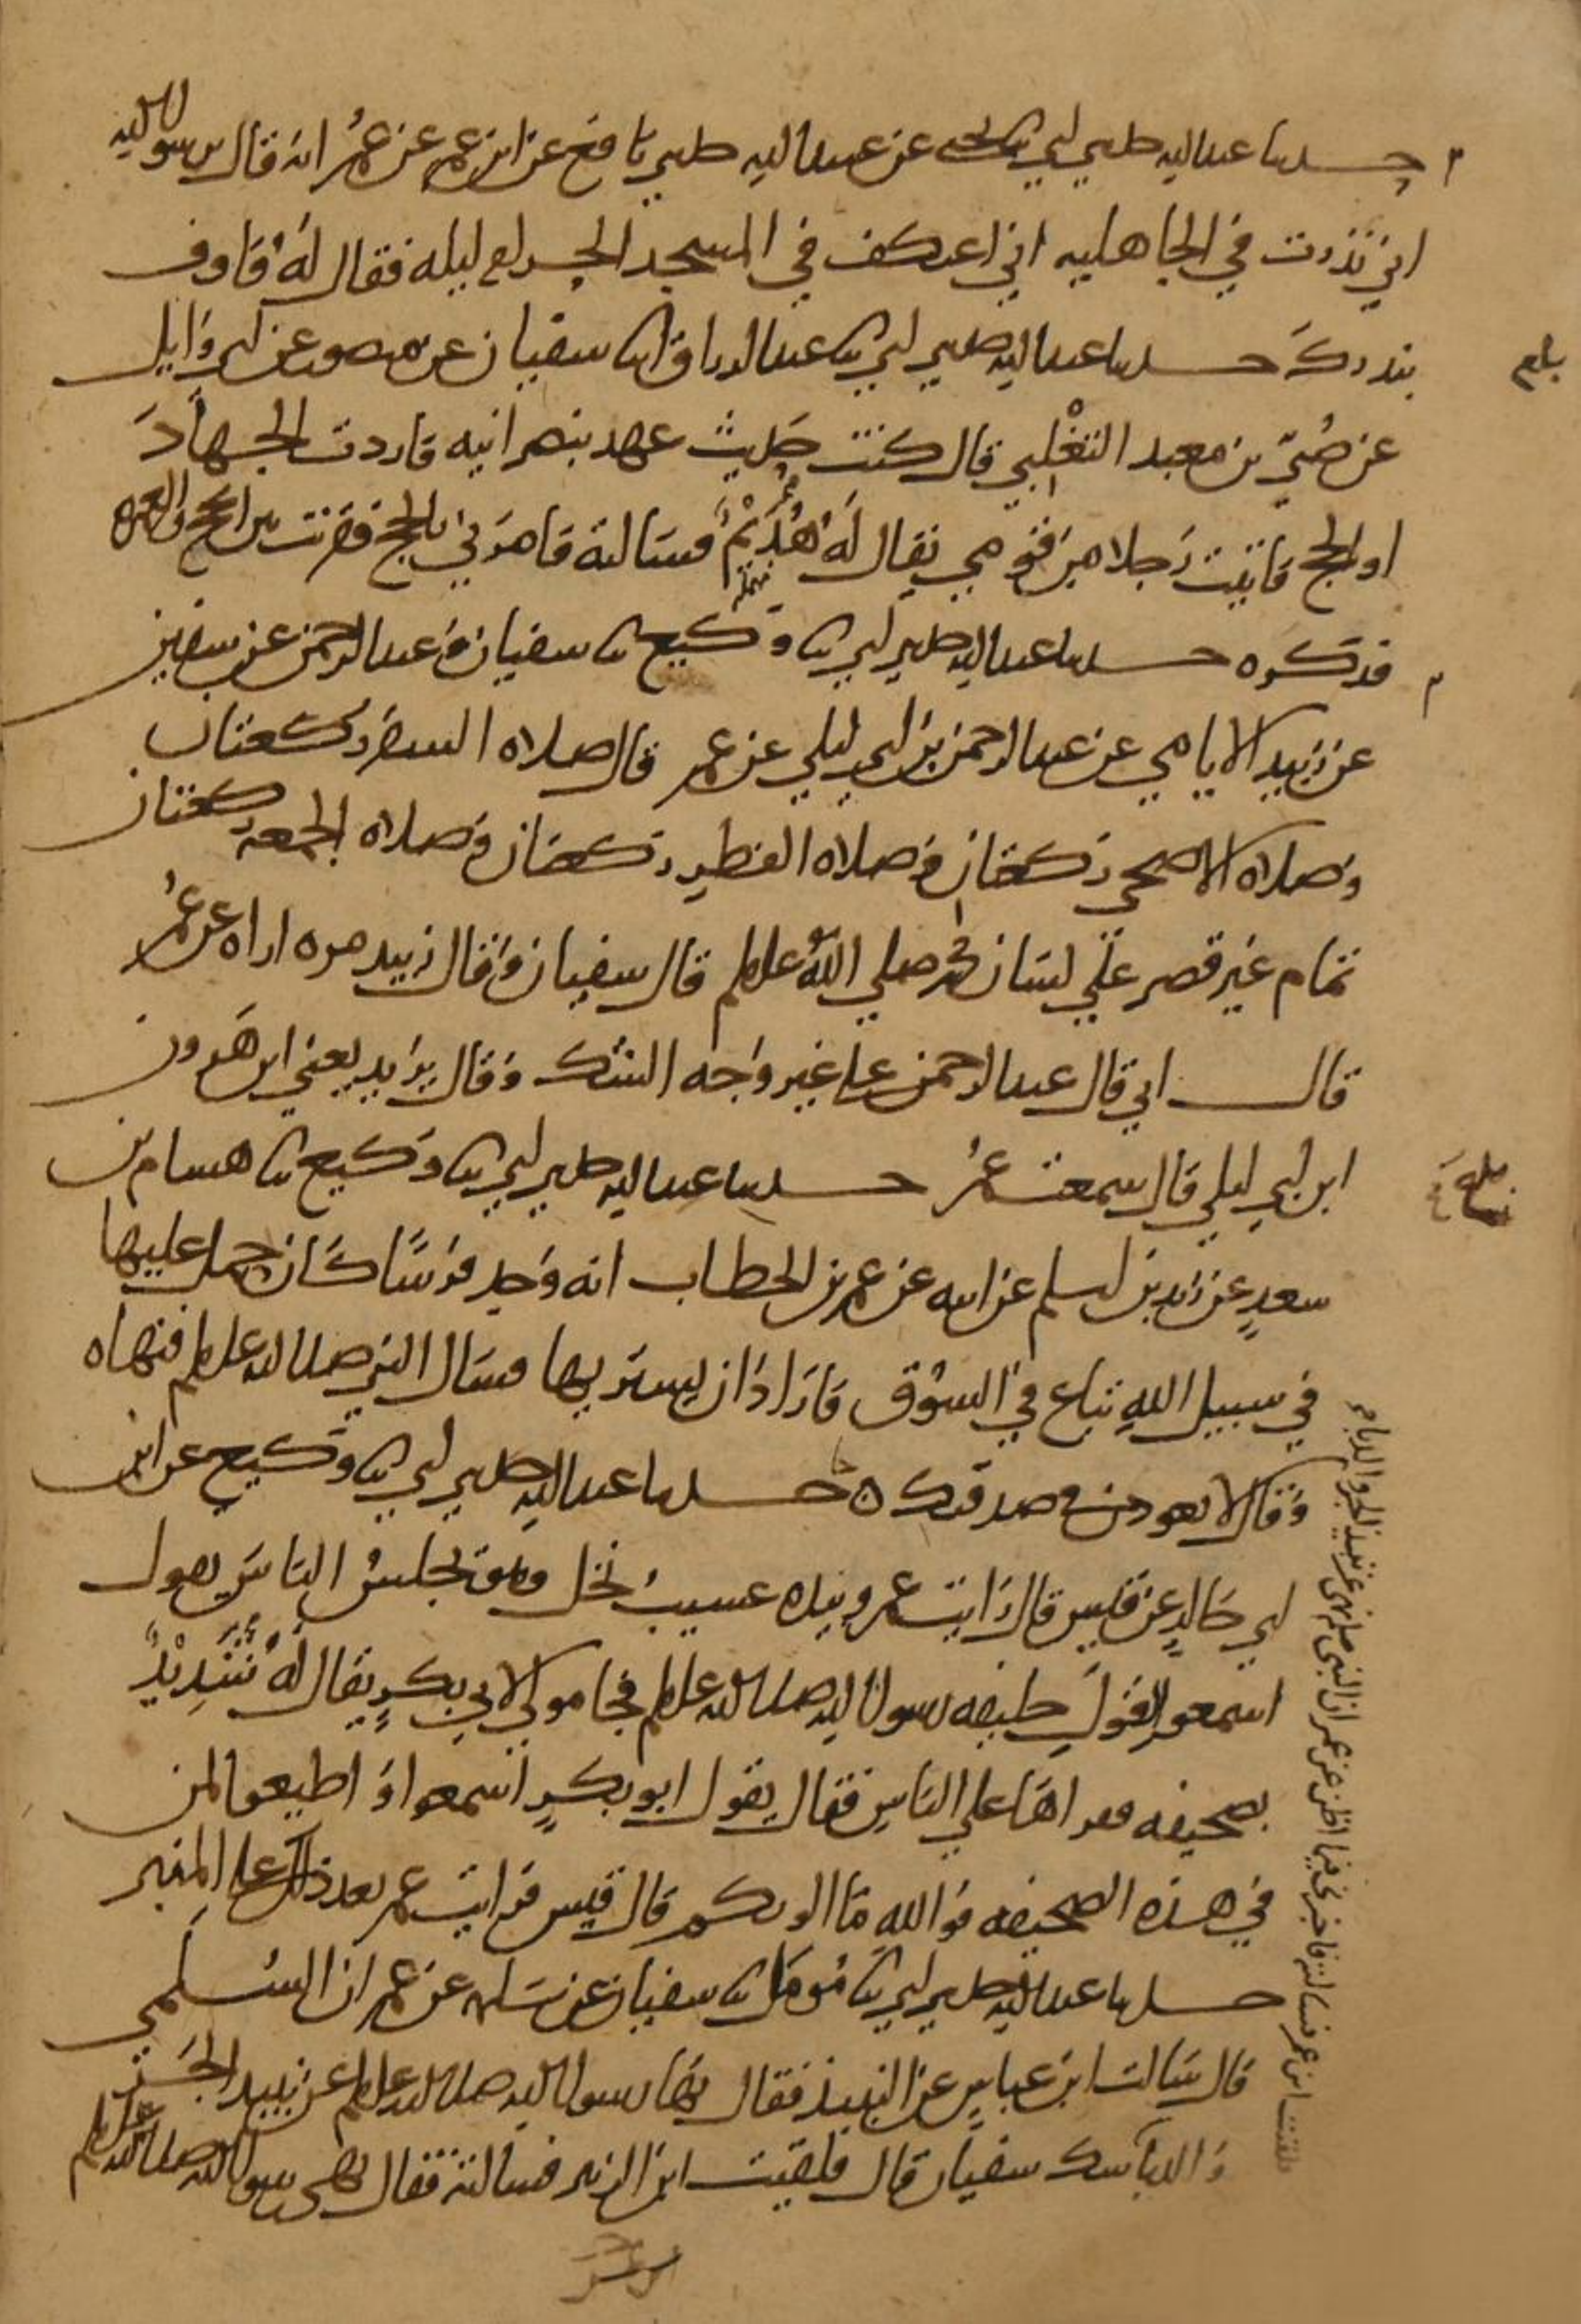 حدثنا عبد الله حدثني ابي ثنا يحيى عن عبيد الله حدثني نافع عن ابن عمر عن عمر انه قال يرسول الله
اني نذرت في الجاهليه اني اعتكف في المسجد الحرام ليله فقال له فاوف
بنذرك حدثنا عبد الله حدثني ابي ثنا عبد الرزاق انا سفيان عن منصور عن ابي وايل
عن صُبَيّ بن معبد التغْلبي قال كنت حديث عهد بنصرانيه فاردت الجهاد
او الحج فاتيت رجلا من قومي يقال له هُدَيْم فسالته فامرني بالحج فقرنت بين الحج والعمره
فذكره حدثنا عبد الله حدثني ابي ثنا وكيع ثنا سفيان وعبد الرحمن عن سفين
عن زبيد الايامي عن عبد الرحمن بن ابي ليلي عن عمر قال صلاه السفر ركعتان
وصلاه الاضحي ركعتان وصلاه الفطر ركعتان وصلاه الجمعه ركعتان
تمام غير قصر علي لسان محمد صلي الله عليه وسلم قال سفيان وقال زبيد مره اراه عن عمر
قال ابي قال عبد الرحمن علي غير وجه الشك وقال يزيد يعني ابن هرون
ابن ابي ليلي قال سمعت عمر حدثنا عبد الله حدثني ابي ثنا وكيع ثنا هشام بن
سعدٍ عن زيد بن اسلم عن ابيه عن عمر بن الخطاب انه وجد فرسًا كان حمل عليها
في سبيل الله تباع في السوق فاراد ان يشتريها فسال النبي صلى الله عليه وسلم فنهاه
وقال لا تعودن في صدقتك ه حدثنا عبد الله حدثني ابي ثنا وكيع عن ابن
ابي خالدٍ عن قيس قال رايت عمر وبيده عسيب نخل وهو يجلس الناس يقول
اسمعوا لقول خليفه رسول الله صلى الله عليه وسلم فجا مولي لابي بكرٍ يقال له شَدِيْدٌ
بصحيفه فقراها علي الناسِ فقال يقول ابو بكرٍ اسمعوا و اطيعوا لمن
في هذه الصحيفه فوالله ما الوتكم قال قيس فرايت عمر بعد ذلك علي المنبر
حدثنا عبد الله حدثني ابي ثنا مومل ثنا سفيان عن سلمه عن عمران السلمي
قال سالت ابن عباسٍ عن النبيذ فقال نهى رسول الله صلى الله عليه وسلم عن نبيذ الجر
والدبا سفيان قال فلقيت ابن الزبير فسالته فقال نهى رسول الله صلى الله عليه وسلم
بلغ
فلقيت ابن عمر فسالته فاخبرني فيما اظن عن عمر ان النبي صلى نهى عن نبيذ الجر والدبا